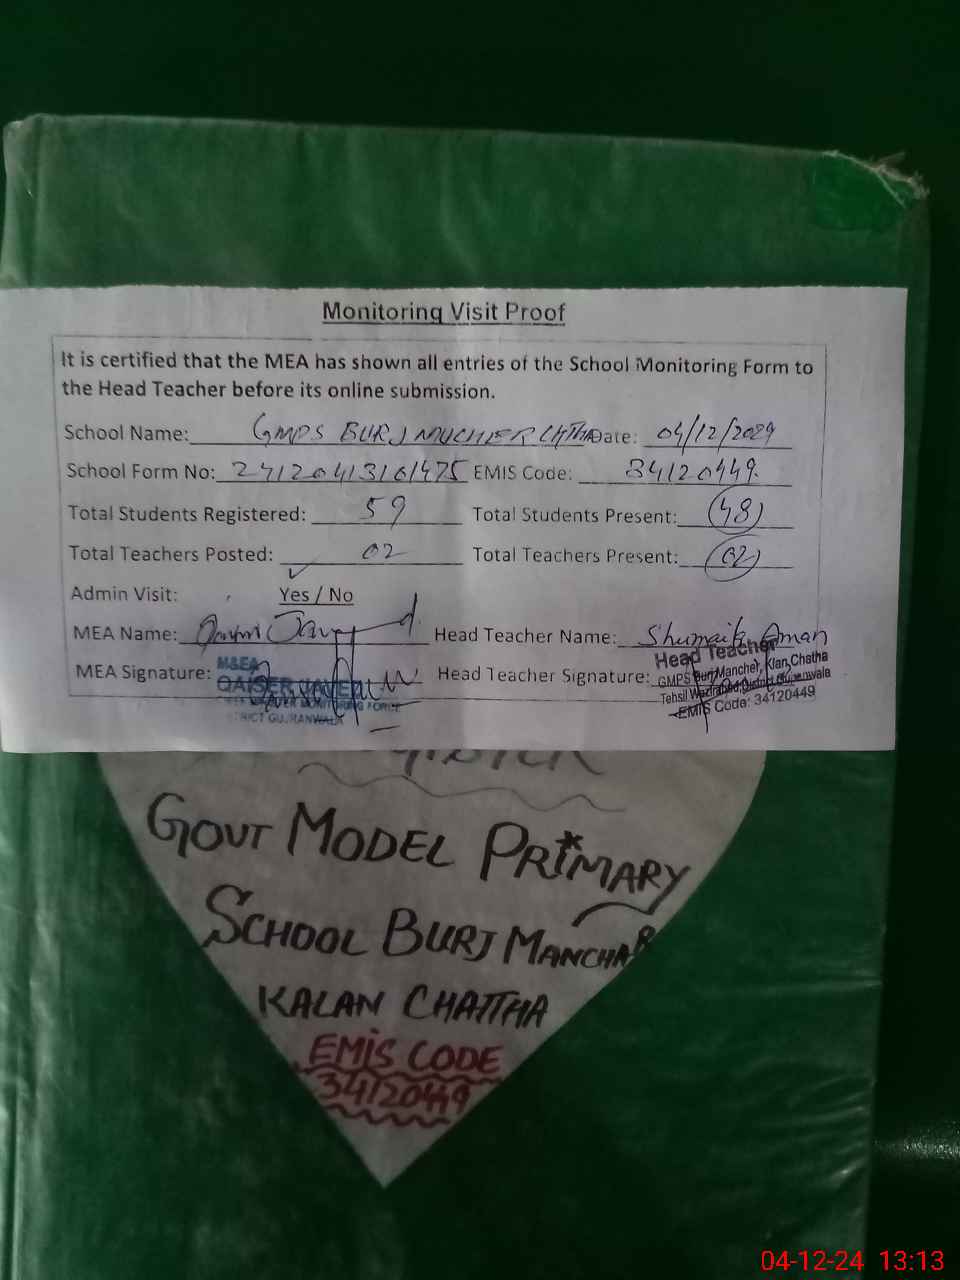 Monitoring Visit Proof
It is certified that the MEA has shown all entries of the School Monitoring Form to
the Head Teacher before its online submission.
School Name: GMPS BURJ MUCHER CHTHA Date: 04/12/2024
School Form No: 24120413101475 EMIS Code: 34120449
Total Students Registered: 59 Total Students Present: 48
Total Teachers Posted: 02 Total Teachers Present: 02
Admin Visit: Yes / No
MEA Name: Head Teacher Name: Shumaila Aman
MEA Signature: Head Teacher Signature:
M&EA
QAISER JAVED
MONITORING FORCE
GUJRANWALA
Head Teacher
GMPS Burj Mancher, Klan, Chatha
Tehsil Wazirabad, District Gujranwala
EMIS Code: 34120449
GOVT MODEL PRIMARY
SCHOOL BURJ MANCHAR
KALAN CHATTHA
EMIS CODE
34120449
04-12-24 13:13